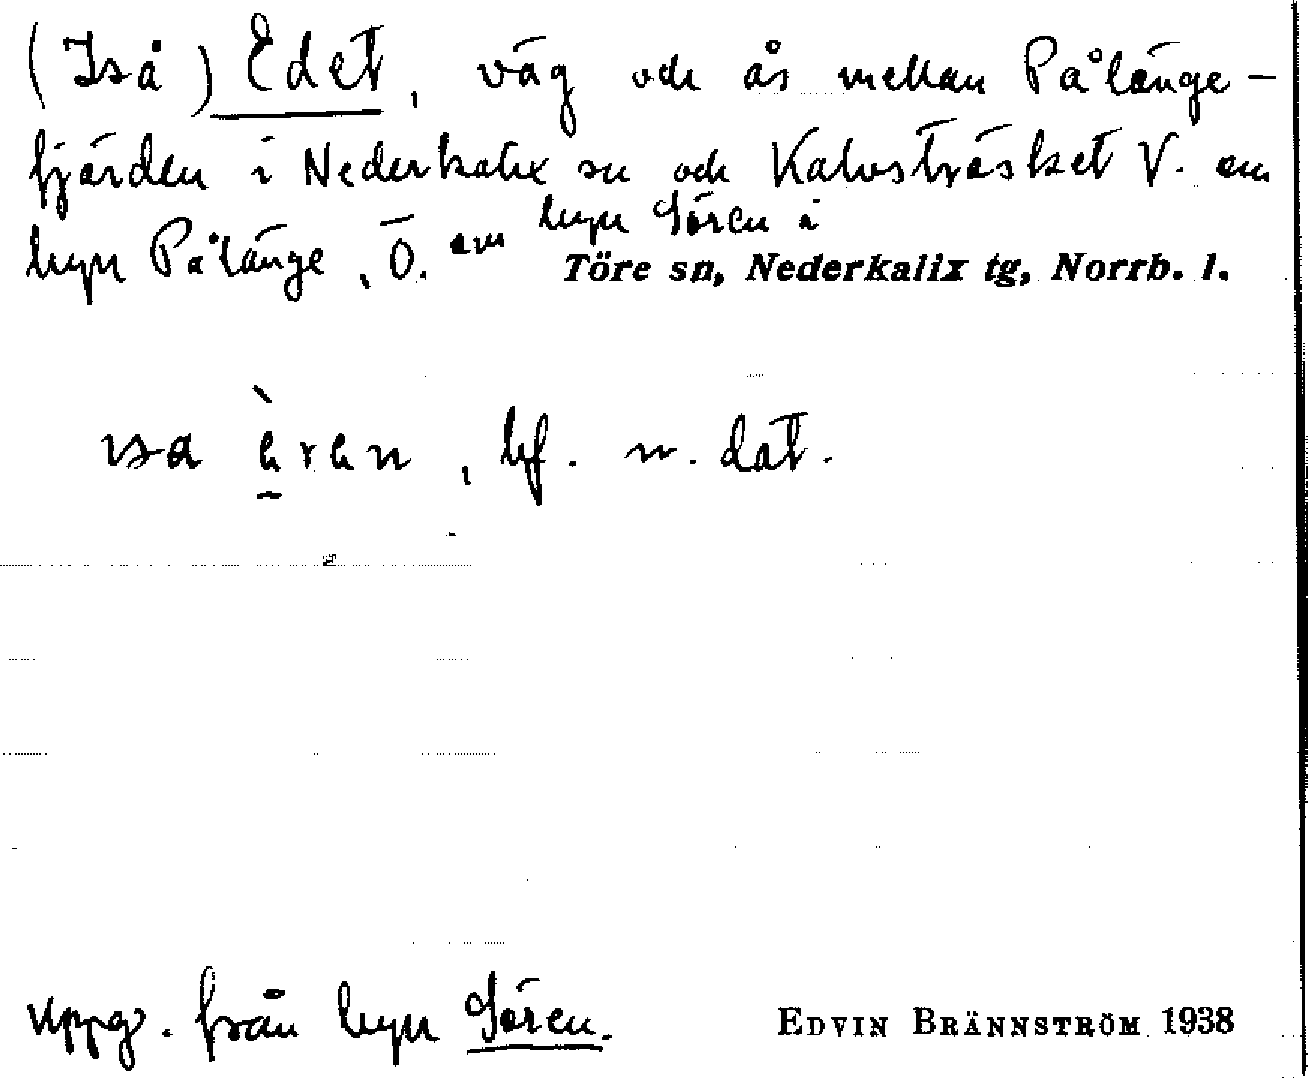 (Iså) Edet, väg och ås mellan Pålänge-
fjärden i Nederkalix sn och Kalvsträsket V. om
byn Pålänge, Ö. om byn Sören i
Töre sn, Nederkalix tg, Norrb. l.
ɪsa èren, bf. n. dat.
uppg. från byn Sören.
EDVIN BRÄNNSTRÖM 1938